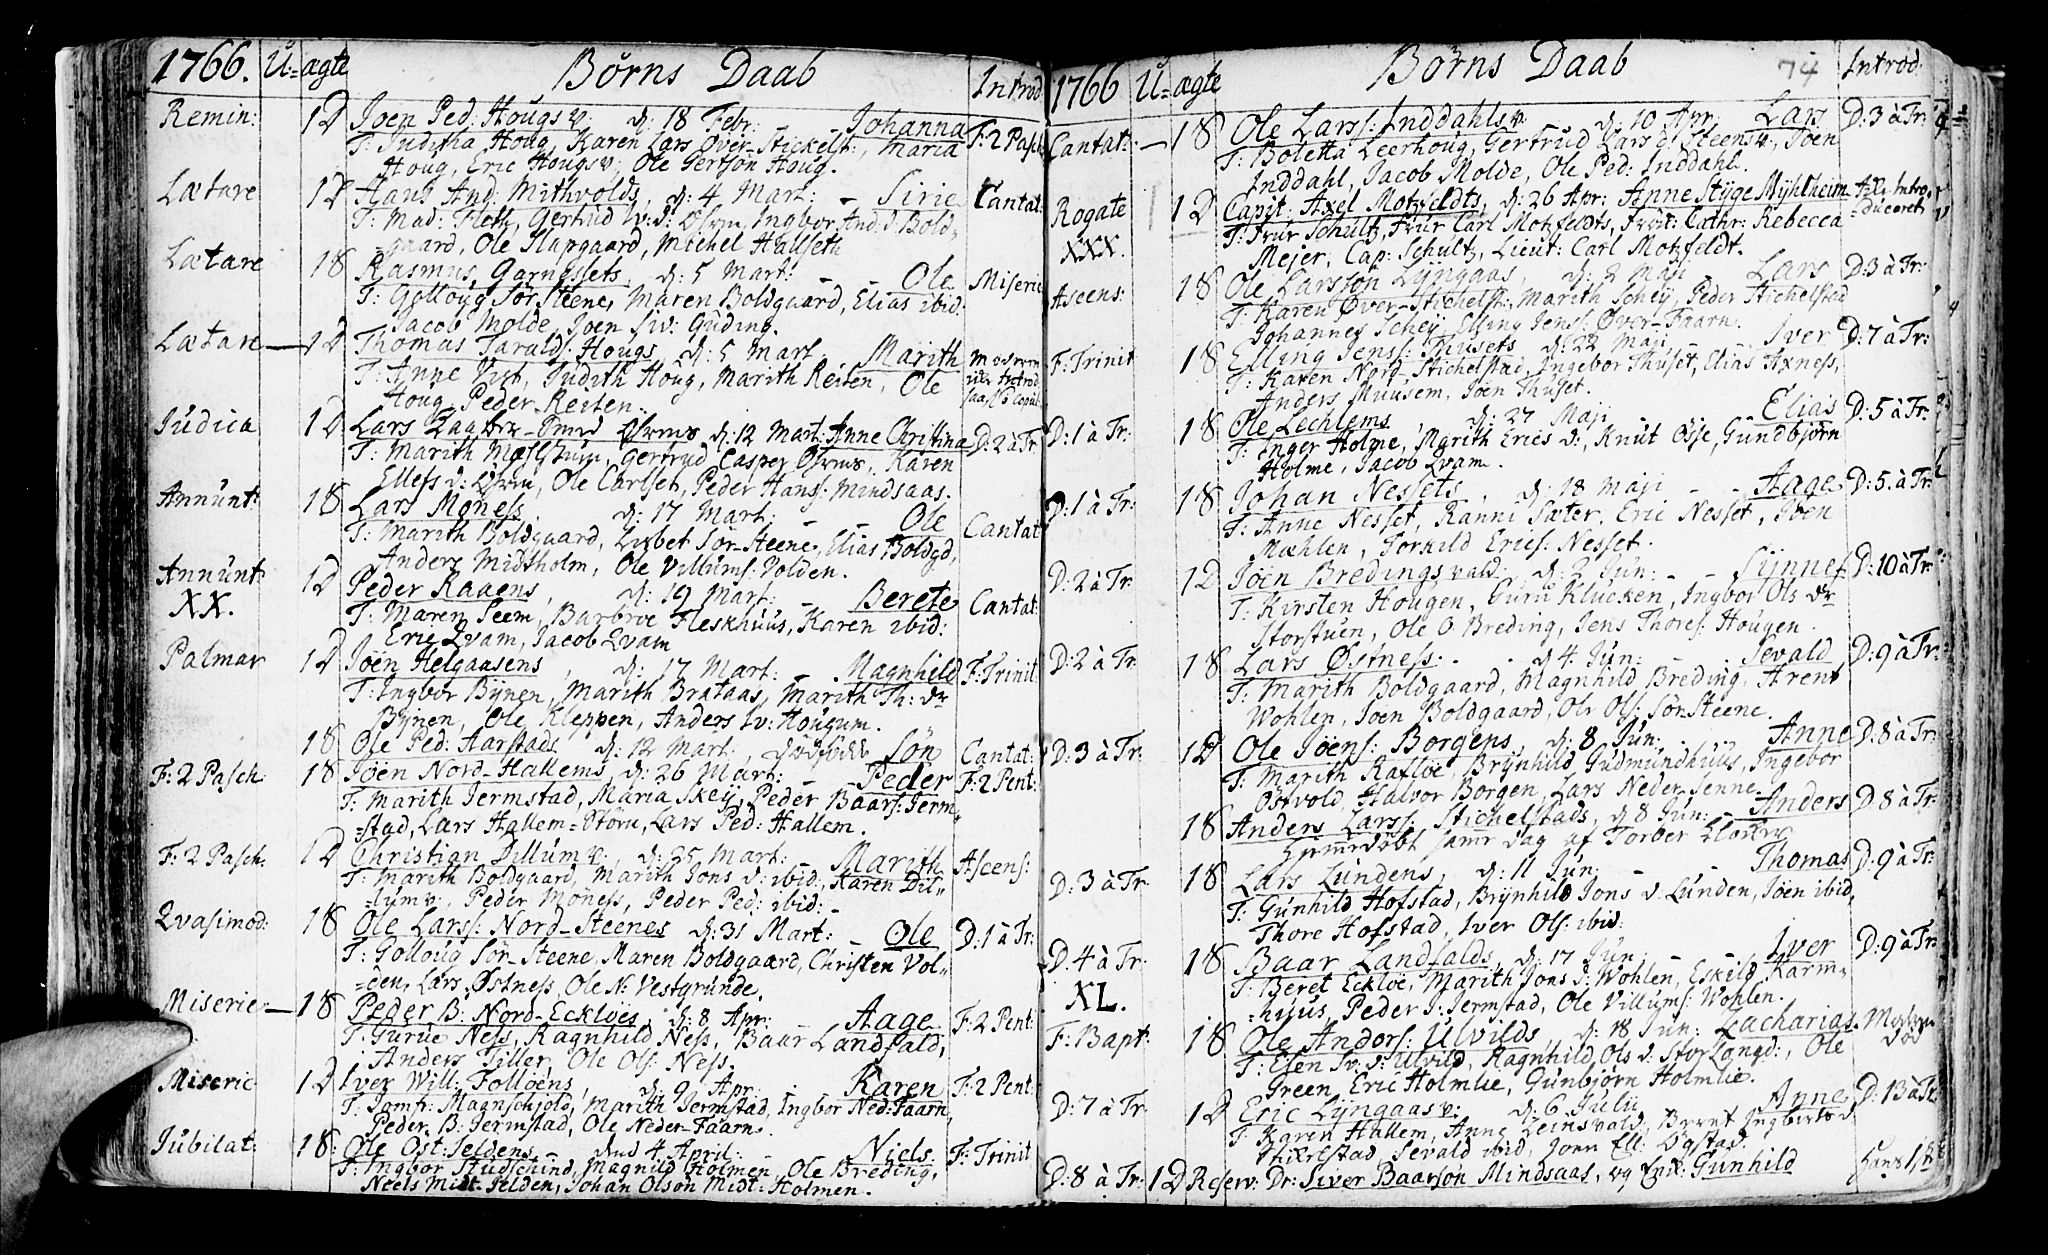 1766. U= ægte Börns Daab Introd
Remin: 1D Joen Ped: Hougs v. d: 18 Febr: Johanna F:2 Pasch
T: Juditha Houg, Karen Lars Över-Stickelst:, Maria
Houg, Eric Hougsv:, Ole Gertsön Houg.
Lætare 1D Hans And: Mithvolds, d: 4 Mart: - Sirie Cantat:
T: Mad: Fleth, Gertrud Iv: d: Ösrm, Ingbor And: d. Bold=
=gaard, Ole Slapgaard, Michel Hallseth
Lætare 18 Rasmus Garnessets d: 5 Mart: - Ole Miseric
T: Golloug Sör Steene, Maren Boldgaard, Elias ibid:
Jacob Molde, Joen Siv: Guding.
Lætare - 1D Thomas Tarald: Hougs d: 5 Mart. Marith
T: Anne Vist, Judith Houg, Marith Reiten, Ole
Houg, Peder Reiten.
Judica 1D Lars d: 12 Mart: Anne Christina D:2 à Tr:
T: Marith Mæhlum, Gertrud Casper, Karen
Ellefs d: Ösrm, Ole Carlset, Peder Hans: Mindsaas.
Annunt: 18 Lars Moness, d: 17 Mart: - Ole Cantat
T: Marith Boldgaard, Lisbet Sör-Steene, Elias Boldgd,
Anders Midtholm, Ole Villums: Volden.
Annunt: 1D Peder Raaens, d: 19 Mart: - Berete Cantat:
XX. T: Maren Seem, Barbroe Fleskhuus, Karen ibid:
Eric Qvam, Jacob Qvam
Palmar 1D Jöen Helgaasens, d: 17 Mart. - Magnhild F: Trinit:
T: Ingbor Bÿnen, Marith Brataas, Marith Th: dr
Bÿnen, Ole Kleppen, Anders Iv: Hougum.
18 Ole Ped: Aarstads d: 12 Mart, Sön Cantat:
F:2 Pasch: 18 Jöen Nord-Hallems, d: 26 Mart: - Peder F:2 Pent:
T: Marith Jermstad, Maria Skeÿ, Peder Baars: Jerm=
=stad, Lars Hallem=Störu, Lars Ped: Hallem.
F:2 Pasch. 1D Christian Dillum v., d: 25 Mart: Marith Ascens:
T: Marith Boldgaard, Marith Jons d: ibid:, Karen Dil=
=lum v., Peder Moness, Peder Ped: ibid:
Qvasimod: 18 Ole Larss: Nord-Steenes d: 31 Mart: - Ole D:1 à Tr:
T: Golloug Sör-Steene, Maren Boldgaard, Christen Vol=
=den, Lars Östness, Ole N: Vestgrunde.
Miserie: - 18 Peder B: Nord-Eckloes, d: 8 Apr: Aage F:2 Pent:
T: Gurue Ness, Ragnhild Ness, Baar Landfald,
Anders Tiller, Ole Ols: Ness.
Miseric 1D Iver Will: Folloens, d: 9 Apr: - Karen F:2 Pent:
T: Jomfr: Magnschjold, Marith Jermstad, Ingbor Ned: Faarn,
Peder B: Jermstad, Ole Neder-Faarn.
Jubilat: 18: Ole Ost: Jeldens dend 4 April: Niels F: Trinit
T: Ingbor Studschind, Magnild Holmen, Ole Breding,
Neels Midt-Jelden, Johan Olson Midt-Holmen.
1766 U= ægte Börns Daab 74 Introd.
Cantat: - 18 Ole Larss: Inddahls v. d: 10 Apr: Lars D:3 à Tr:
T: Boletta Leerhoug, Gertrud Lars d: Steensv:, Joen
Inddahl, Jacob Molde, Ole Ped: Inddahl.
Rogate 1D Capit: Axel Motzfeldts, d: 26 Apr: Anne Stÿge Mÿhlheim
XXX. T: Frur Schultz, Frur Carl Motzfeldts, Frøk: Cathr: Rebecca
Mejer, Cap: Schultz, Lieut: Carl Motzfeldt.
Ascens: 18 Ole Larsson Lÿngaas, d: 2 Maji Lars D:3 à Tr:
T: Karen Över-Stichelst:, Marith Scheÿ, Peder Stichelstad
Johannes Scheÿ, Elling Jens: Över-Faarn.
F: Trinit 18 Elling Jens: Thusets d: 22 Maji Iver D:7 à Tr:
T: Karen Nord-Stichelstad, Ingebor Thuset, Elias Axness,
Anders Muusem, Jöen Thuset.
D:1 à Tr: 18 Ole Lechlems, d: 27 Maji Elias D:5 à Tr:
T: Inger Holme, Marith Erics d:, Knut Öste, Gundbjörn
Holme, Jacob Qvam.
D:1 à Tr: 18 Johan Nessets, d: 18 Maji - - Aage D:5. à Tr:
T: Anne Nesset, Ranni Sæter, Eric Nesset, Joen
Mæhlen, Torkild Erics: Nesset.
D:2 à Tr: 1D Jöen Bredings vald: d: 2 Jun: - Sÿnnef D:10 à Tr:
T: Kirsten Hougen, Guru Klucken, Ingbor Ols dr
Storstuen, Ole O Breding, Jens Thores: Hougen.
D:2 à Tr. 18 Lars Östness: . . d: 4 Jun: - Sevald D:9 à Tr:
T: Marith Boldgaard, Magnhild Breding, Arent
Wohlen, Joen Boldgaard, Ole Ols: Sör Steene.
D:3 à Tr: 1D Ole Jöens: Borgens, d: 8 Jun: . . Anne D:8 à Tr:
T: Marith Rafloe, Brÿnhild Gudmundhuus, Ingebor
Östvold, Halvor Borgen, Lars Neder-Jenne.
18 Anders Larss: Stichelstads, d 8 Jun: - Anders D:8 à Tr:
Hjemedöbt samme Dag af Torber
D:3 à Tr: 18 Lars Lundens, d: 11 Jun: - - Thomas D:9 à Tr:
T: Gunhild Hofstad, Brÿnhild Jons d. Lunden, Jöen ibid,
Thore Hofstad, Iver Ols: ibid:
D:4 à Tr: 18 Baar Landfalds, d: 17 Jun: - Iver D:9 à Tr:
XL. T: Beret Eckloe, Marith Jons d: Wohlen, Eskild Karm=
=huus, Peder J: Jermstad, Ole Villums: Wohlen.
F: Bapt: 18 Ole Anders: Ulvilds d: 18 Jun: Zacharias.
T: Elen Iv. d: Ulvild, Ragnhild Ols d. Stor Langd:, Ole
Green, Eric Holmlie, Gunbjörn Holmlie.
D:7 à Tr 1D Eric Lÿngaas v: d: 6 Julii Anne D:13 à Tr.
T: Karen Hallem, Anne Leinsvald, Berret
Stikelstad, Sevald ibid, Jonn Ell:
D:8 à Tr: 1D Reserv: Dr: Siver Baarsön Mindsaas, og Enk: Gunhild